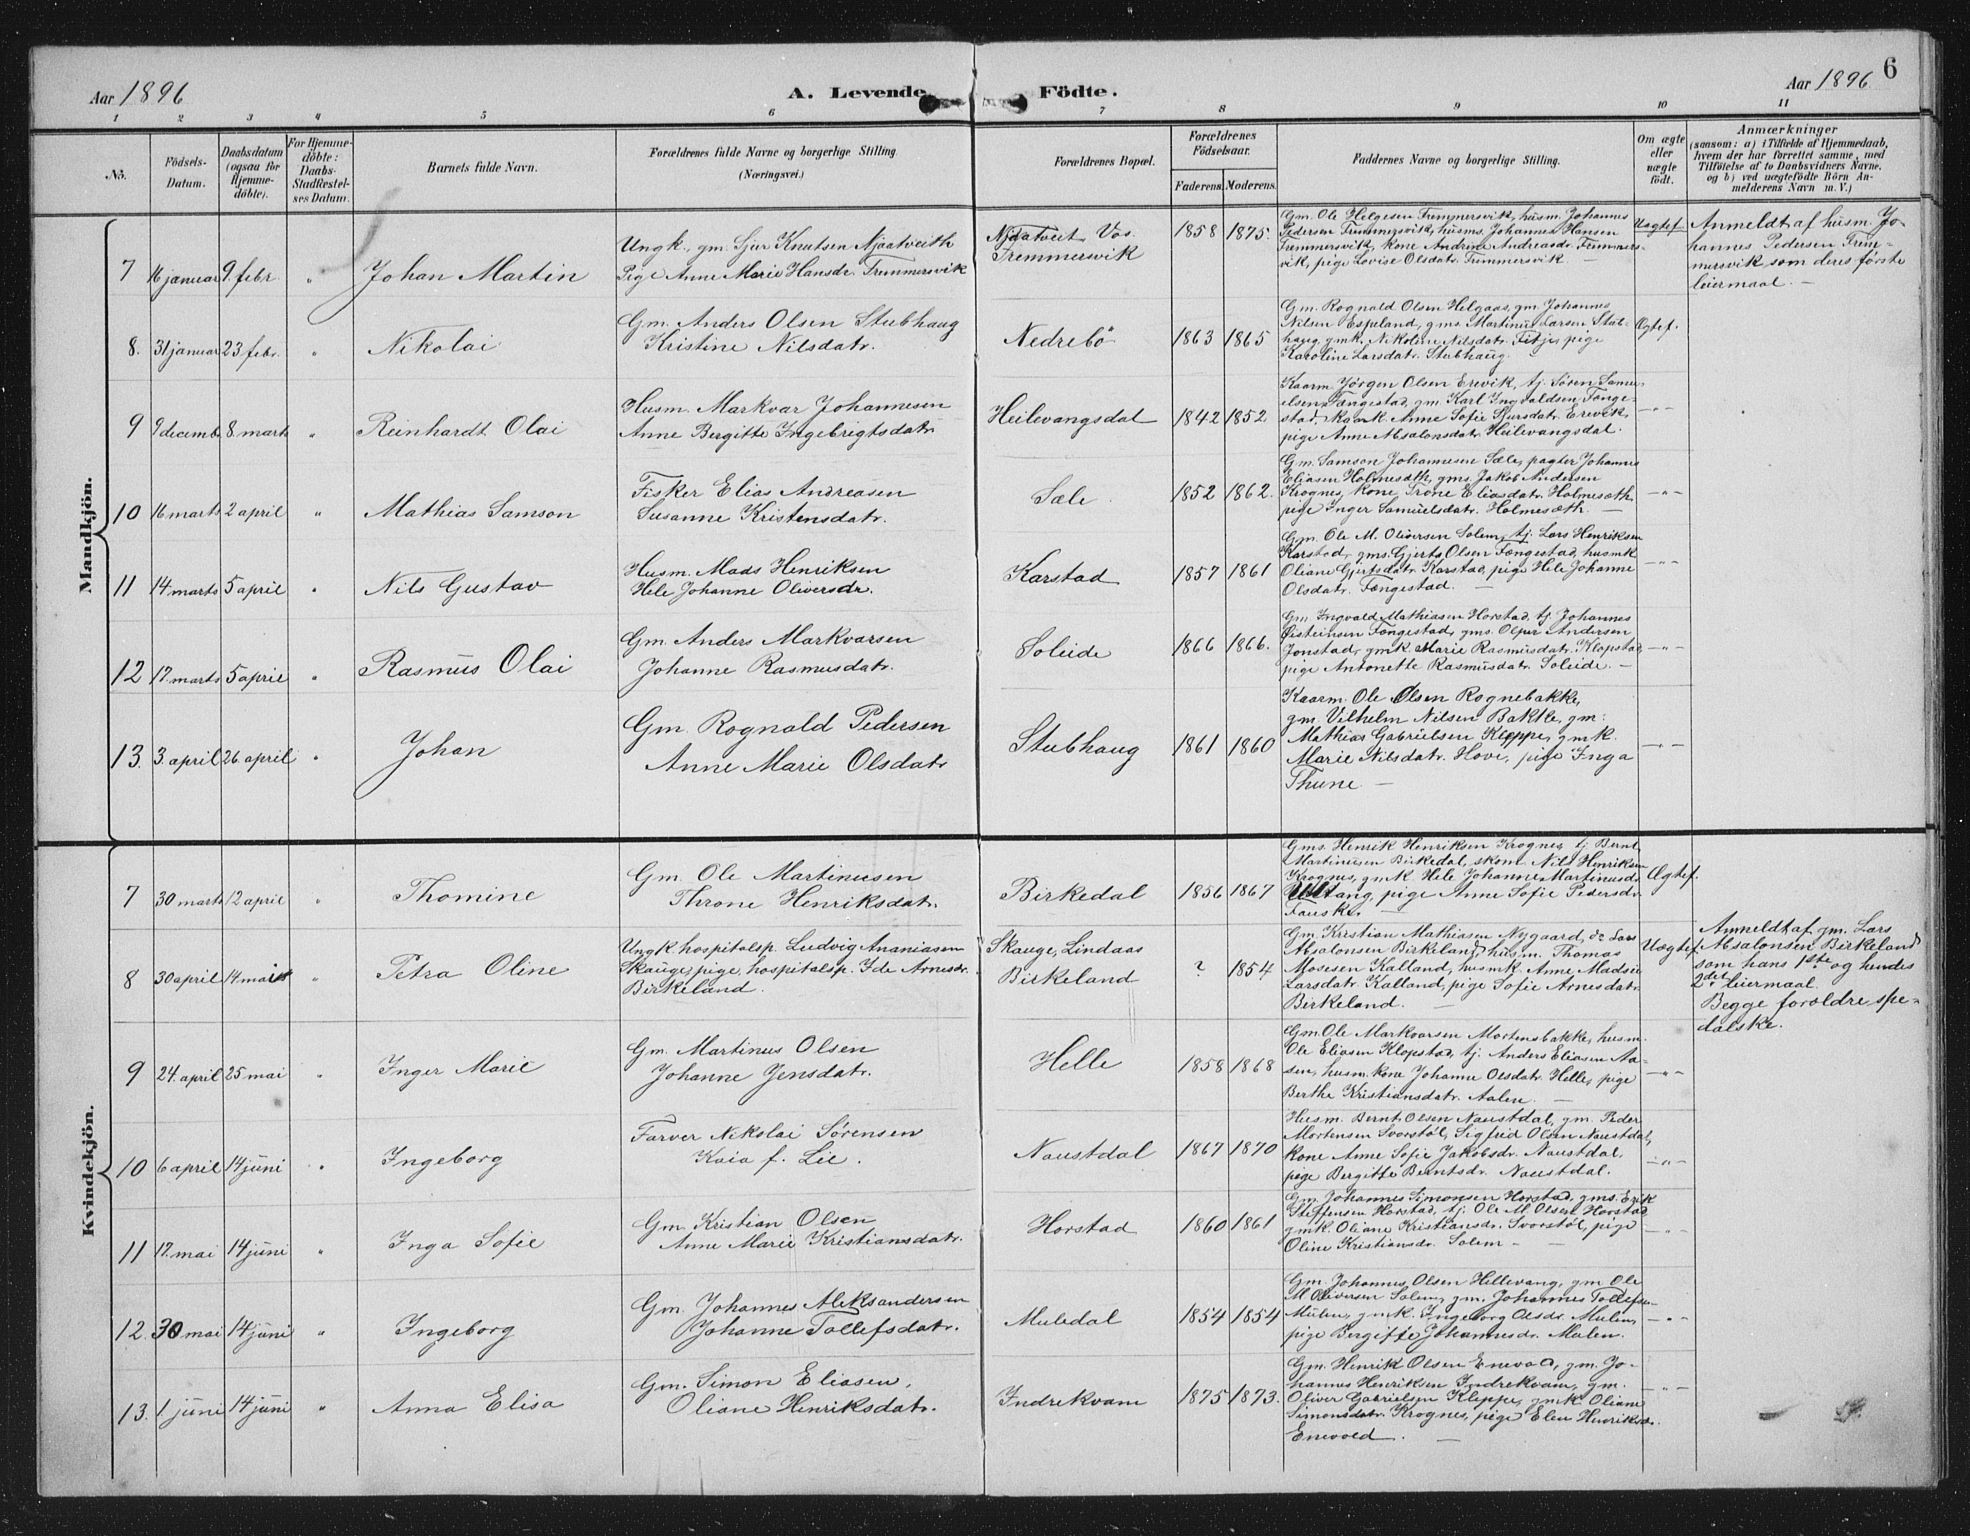 Aar 1896
A. Levende
Födte.
Aar 1896
6
1 2 3 4 5 6 7 8 9 10 11
No.
Födsels-
Datum.
Daabsdatum
(ogsaa for
Hjemme-
döbte).
For Hjemme-
döbte:
Daabs-
Stadfæstel-
ses Datum.
Barnets fulde Navn.
Forældrenes fulde Navne og borgerlige Stilling.
(Næringsvei.)
Forældrenes Bopæl.
Forældrenes
Födselsaar.
Faderens. Moderens.
Faddernes Navne og borgerlige Stilling.
Om ægte
eller
uægte
födt.
Anmærkninger
(saasom: a) i Tilfælde af Hjemmedaab,
hvem der har forrettet samme, med
Tilföielse af to Daabsvidners Navne,
og b) ved uægtefödte Börn An-
melderens Navn m. V.)
Mandkjön.
7 16 januar 9 febr. " Johan Martin
Ungk., gm. Gjur Knutsen Njaatveith
Pige Anne Marie Hansdr. Tremmersvik
Njaatveit Vos.
Tremmersvik
1858 1875.
Gm. Ole Helgesen Tremmersvik, husm. Johannes
Pedersen Tremmersvik, husms. Johannes Hansen
Tremmersvik, kone Andrine Andreasdr Tremmers-
vik, pige Lovise Olsdatr. Tremmersvik —
Uægtef.
Anmeldt af husm. Jo-
hannes Pedersen Trem-
mersvik som deres første
leiermaal. —
8. 31 januar 23 febr. " Nikolai
Gm. Anders Olsen Stubhaug
Kristine Nilsdatr.
Nedrebö
1863 1865
Gm. Rognald Olsen Helgaas, gm. Johannes
Nilsen Espeland, gms. Martinus Larsen Stub-
haug, gmk. Nikoline Nilsdatr. Fitje, pige
Karoline Larsdatr. Stubhaug
Ægtef.
9 9 decembr 8 marts " Reinhardt Olai
Husm. Markvar Johannesen
Anne Bergitte Ingebrigtsdatr.
Heilevangsdal
1842 1852
Kaarm. Jörgen Olsen Erevik, tj. Sören Samu-
elsen Fængestad, gm. Karl Ingvaldsen Fænge-
stad, kaark. Anne Sofie Sjursdatr. Erevik,
pige Anne Absalonsdatr. Heilevangsdal.
-"-
10 16 marts 2 april " Mathias Samson
Fisker Elias Andreasen
Susanne Kristensdatr.
Sæle
1852 1862.
Gm. Samson Johannesen Sæle, pagter Johannes
Eliasen Holmesæth, gms. Jakob Andersen
Krognes, kone Trone Eliasdatr. Holmesæth,
pige Inger Samuelsdatr. Holmesæth. —
-"-
11 14 marts 5 april " Nils Gustav
Husm. Mads Henriksen
Hele Johanne Oliversdr.
Karstad
1857 1861
Gm. Ole M. Oliversen Solem, tj. Lars Henriksen
Karstad, gms. Gjerts Olsen Fængestad, husmk
Oliane Gjertsdatr. Karstad, pige Hele Johanne
Olsdatr. Fængestad. —
-"-
12 17. marts 5 april " Rasmus Olai
Gm. Anders Markvarsen
Johanne Rasmusdatr.
Soleide
1866 1866.
Gm Ingvald Mathiasen Horstad, tj. Johannes
Øisteinsen Fængestad, gms. Andersen
Jonstad, gmk. Marie Rasmusdatr. Klopstad,
pige Antonette Rasmusdatr. Soleide. —
-"-
13. 3 april 26 april " Johan
Gm. Rognald Pedersen
Anne Marie Olsdatr
Stubhaug
1861 1860
Kaarm. Ole Olsen Rognebakke,
gm. Vilhelm Nilsen Bakke, gm:
Mathias Gabrielsen Kleppe, gmk.
Marie Nilsdatr. Hove, pige Inga
Thune —
-"-
Kvindekjön.
7 30 marts 12 april " Thomine
Gm. Ole Martinusen
Throne Henriksdatr.
Birkedal
1856 1867
Gms. Henrik Henriksen Krognes, tj. Bernt
Martinusen Birkedal, skom. Nils Henriksen
Krognes, gmk. Hele Johanne Martinusdr.
pige Anne Sofie Pedersdr.
Fauske. —
Ægtef.
8 30 april 14 mai " Petra Oline
Ungk. hospitalsp. Ludvig Ananiasen
Skauge, pige, hospitalsp. Ide Arnesdr.
Birkeland.
Skauge, Lindaas
Birkeland
? 1854
Gm. Kristian Mathiasen Nygaard, do Lars
Absalonsen Birkeland, husm. Thomas
Mosesen Kalland, husmk. Anne Madsie
Larsdatr. Kalland, pige Sofie Arnesdatr.
Birkeland. —
Uægtef.
Anmeldt af gm. Lars
Absalonsen Birkeland
som hans 1ste og hendes
2det leiermaal.
Begge foræaldre spe-
dalske.
9 24. april 25 mai " Inger Marie
Gm. Martinus Olsen
Johanne Jensdatr.
Helle
1858 1868
Gm. Ole Markvarsen Mortensbakke, husm.
Ole Eliasen Klopstad, tj. Anders Eliasen Aa-
sen, husm. kone Johanne Olsdatr. Helle, pige
Berthe Kristiansdatr. Aalen. —
-"-
10 6 april 14 juni " Ingeborg
Farver Nikolai Sørensen
Kaia f. Lie.
Naustdal
1867 1870
Husm. Bernt Olsen Naustdal, gm. Peder
Mortensen Svorstöl, Sigfrid Olsen Naustdal,
kone Anne Sofie Jakobsdr. Naustdal,
pige Bergitte Berntsdr. Naustdal.
-"-
11 17. mai 14 juni " Inga Sofie
Gm. Kristian Olsen
Anne Marie Kristiansdatr.
Horstad
1860 1861
Gm. Johannes Simonsen Horstad, gms. Erik
Steffensen Horstad, tj. Ole M. Olsen Horstad
gmk. Oliane Kristiansdr. Svorstöl, pige
Oline Kristiansdr. Solem - —
-"-
12. 30 mai 14 juni " Ingeborg
Gm. Johannes Aleksandersen
Johanne Tollefsdatr.
Muledal
1854 1854
Gm. Johannes Olsen Hellevang, gm. Ole
M. Oliversen Solem, gm. Johannes Tollefsen
Mulen, gmk. Ingeborg Olsdr. Mulen,
pige Bergitte Johannesdr. Mulen.
-"-
13. 1. juni 14 juni " Anna Elisa
Gm. Simon Eliasen,
Oliane Henriksdatr.
Indrekvam
1875 1873.
Gm. Henrik Olsen Enevold, gm. Jo-
hannes Henriksen Indrekvam, gm.
Oliver Gabrielsen Kleppe, gmk Oliane
Simonsdatr. Krognes, pige Elen Henriksdr.
Enevold. —
-"-